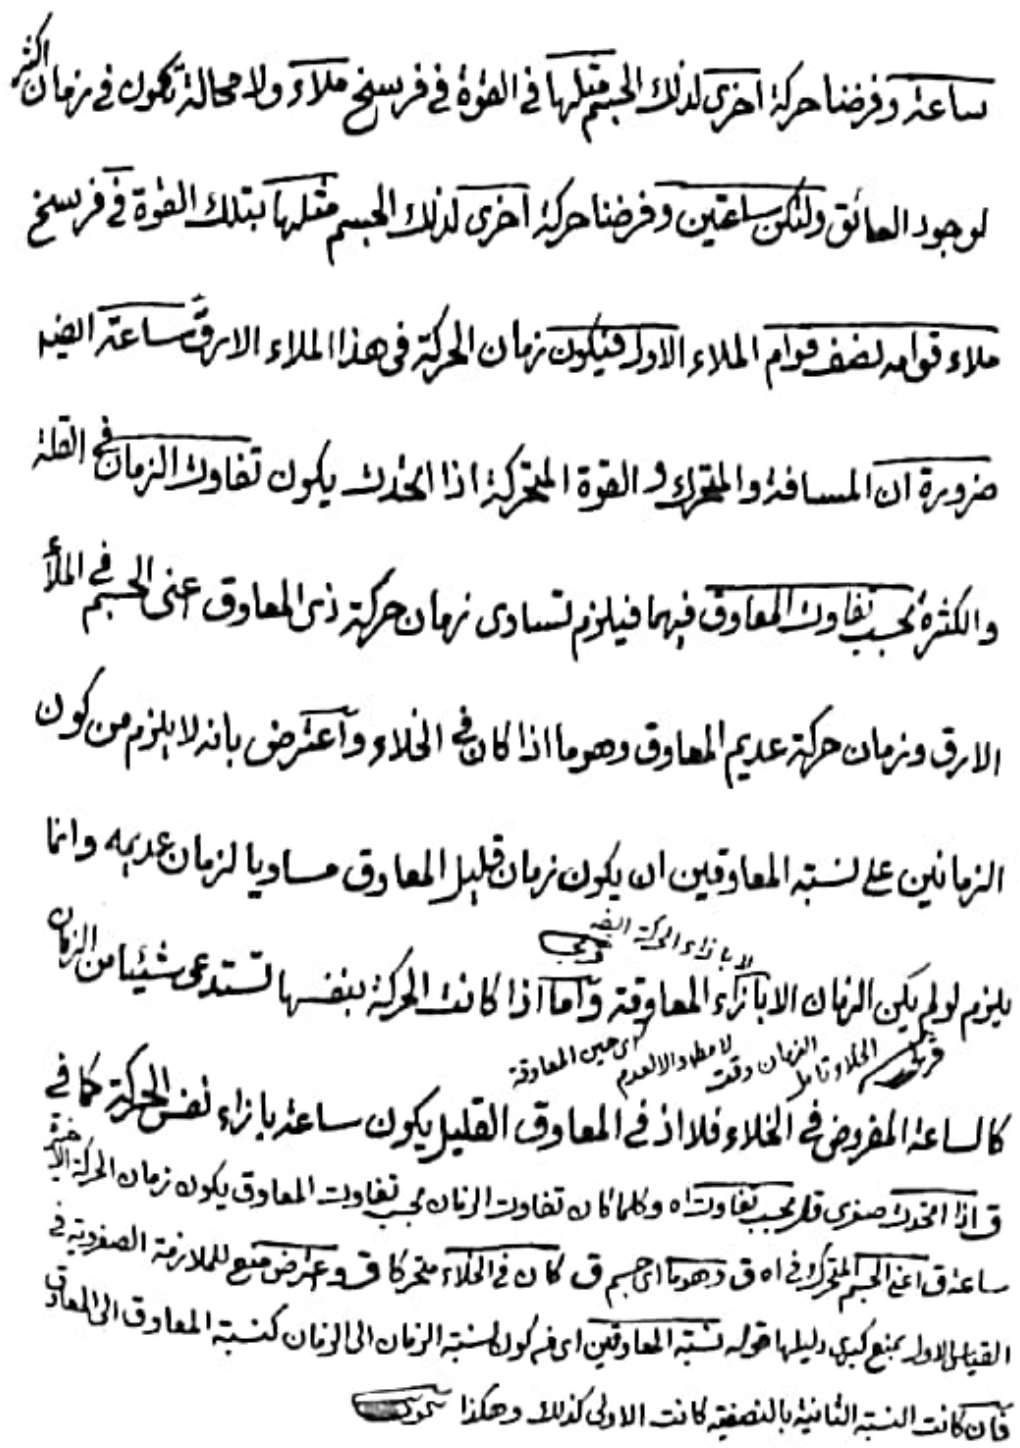 ساعة وفرضنا حركة اخرى لذلك الجسم مثلها في القوة في فرسخ ملاء ولا محالة تكون في زمان اكثر
لوجود العائق ولتكن ساعتين وفرضنا حركة اخرى لذلك الجسم مثلها بتلك القوة في فرسخ
ملاء قوامه نصف قوام الملاء الاول فيكون زمان الحركة في هذا الملاء الارق ساعة ايضا
ضرورة ان المسافة والمتحرك والقوة المتحركة اذا اتحدت يكون تفاوت الزمان في القلة
والكثرة بحسب تفاوت المعاوق فيهما فيلزم تساوى زمان حركة ذى المعاوق اعنى الجسم في الملأ
الارق وزمان حركة عديم المعاوق وهو ما اذا كان في الخلاء وآعترض بانه لا يلزم من كون
الزمانين على نسبة المعاوقين ان يكون زمان قليل المعاوق مساويا لزمان عديمه وانما
لا بازاء الحركة
يلزم لو لم يكن الزمان الا بازاء المعاوقة وآما اذا كانت الحركة بنفسها تستدعى شيئا من الزمان
الخلاء الزمان وقت اى حين المعاوقة
كالساعة المفروض في الخلاء فلا اذ في المعاوق القليل يكون ساعة بازاء نفس الحركة كما في
ق اذا اتحدت صغرى بحسب تفاوت اه وكلما كان تفاوت الزمان بحسب تفاوت المعاوق يكون زمان الحركة الاخيرة
ساعة ق اعنى الجسم المتحرك في اه ق وهو ما اى جسم ق كان في الخلاء متحركا ق واعترض منع للملازمة الصغروية في
القياس الاول بمنع كبرى دليلها قوله نسبة المعاوقين اى من كون نسبة الزمان الى الزمان كنسبة المعاوق الى المعاوق
فان كانت النسبة الثانية بالنصفية كانت الاولى كذلك وهكذا